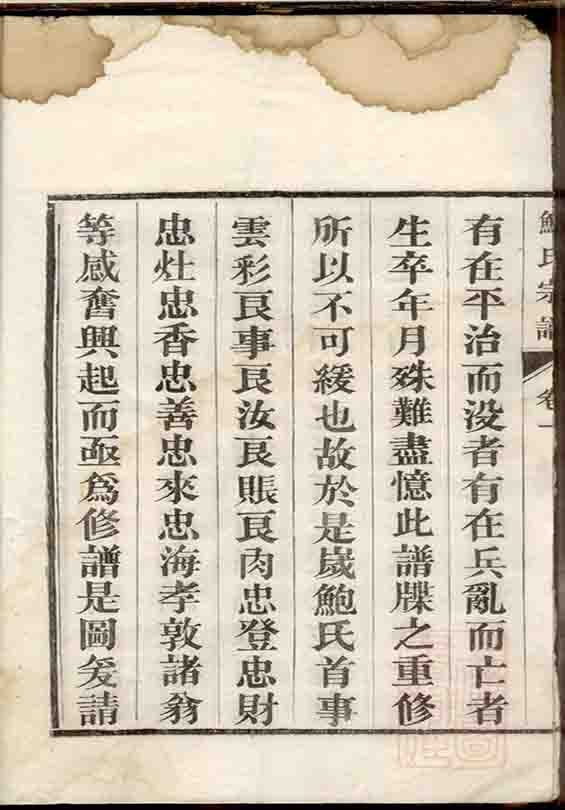 鮑氏宗譜 卷一
有在平治而没者有在兵亂而亡者
生卒年月殊難盡憶此譜牒之重修
所以不可緩也故於是嵗鮑氏首事
雲彩良事良汝良賬良肉忠登忠財
忠灶忠香忠善忠來忠海孝敦諸翁
等感奮興起而亟爲修譜是圖爰請